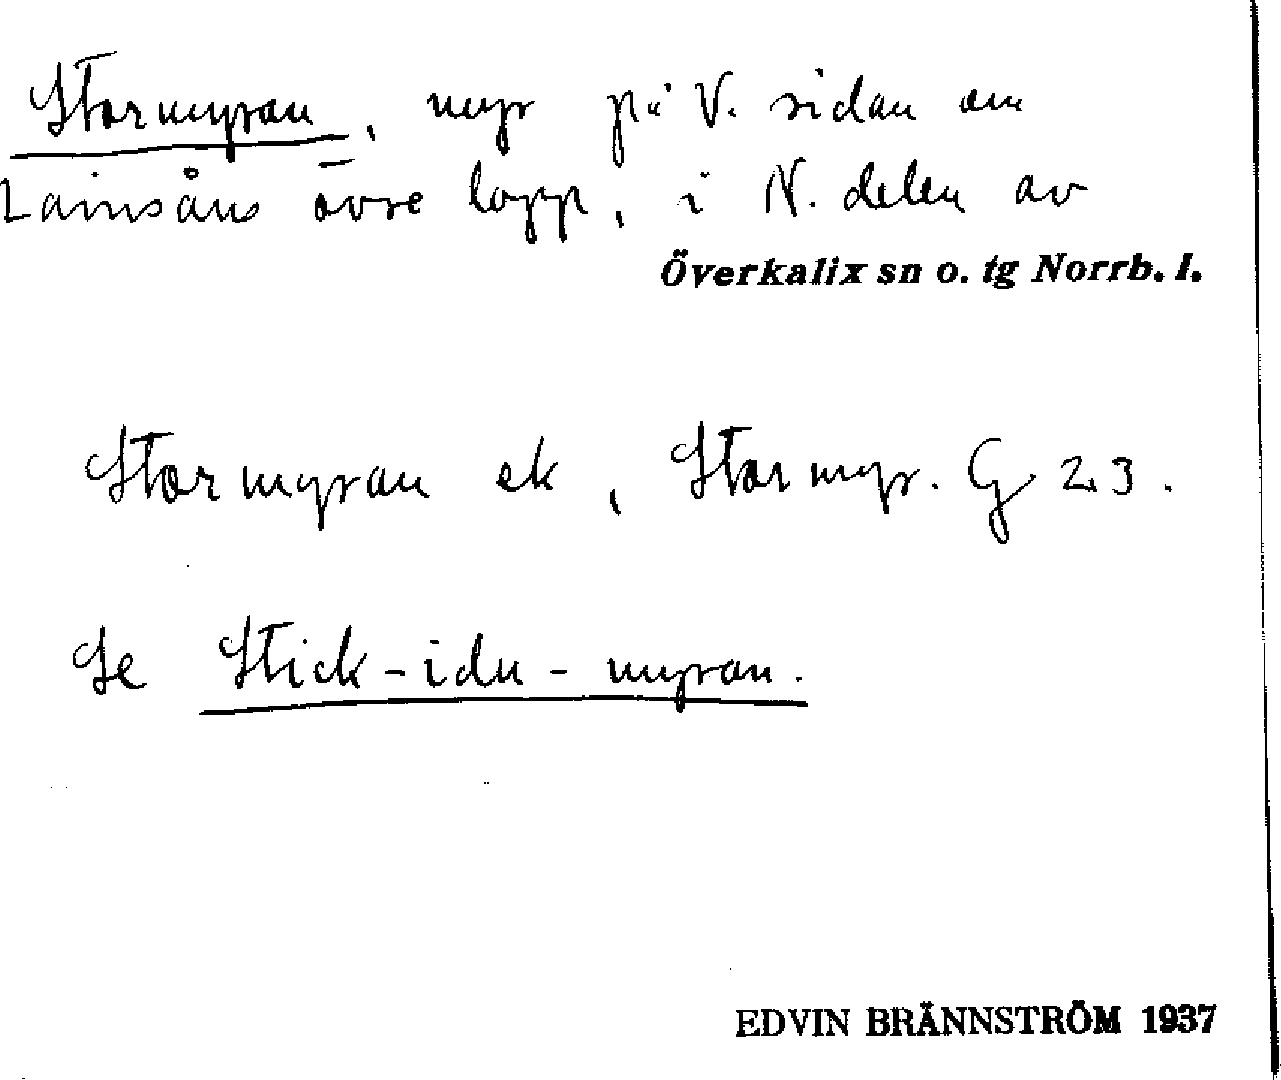 Stormyran, myr på V. sidan om
Lainsåns övre lopp, i N. delen av
Överkalix sn o. tg Norrb. l.
Stormyran ek, Stormyr. G 23.
Se Stick-idu-myran.
EDVIN BRÄNNSTRÖM 1937